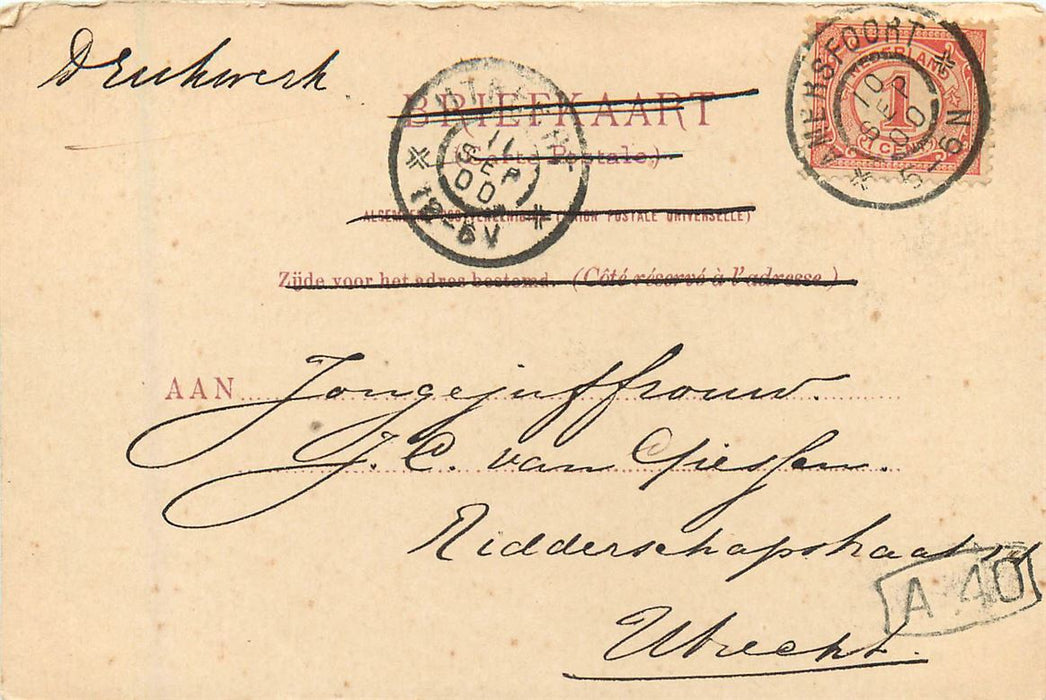 Drukwerk
BRIEFKAART
(Carte Postale.)
ALGEMEENE POSTVEREENIGING (UNION POSTALE UNIVERSELLE)
Zijde voor het adres bestemd. (Côté réservé à l'adresse.)
UTRECHT
11
SEP
00
12-6V
NEDERLAND
1
1 CENT
AMERSFOORT
10
SEP
00
5-6N
AAN Jongejuffrouw.
J. C. van Giessen.
Ridderschapstraat
Utrecht.
A 40